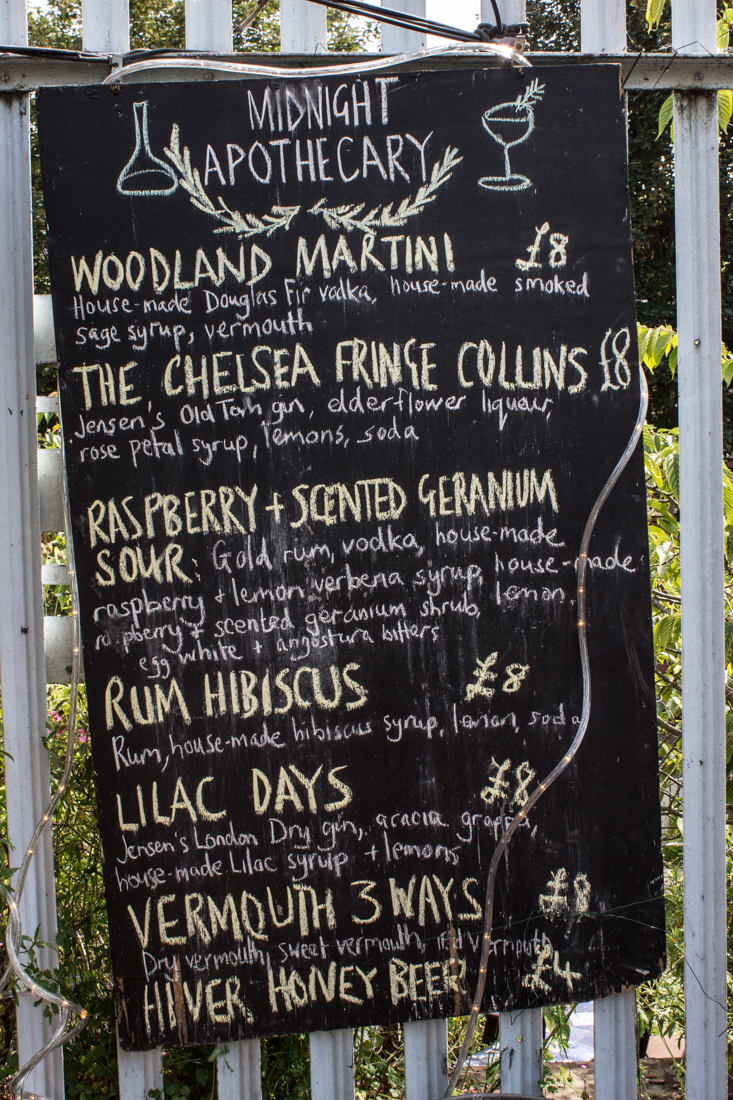 MIDNIGHT
APOTHECARY
WOODLAND MARTINI £8
House-made Douglas Fir vodka, house-made smoked
sage syrup, vermouth
THE CHELSEA FRINGE COLLINS £8
Jensen's Old Tom gin, elderflower liqueur,
rose petal syrup, lemons, soda
RASPBERRY + SCENTED GERANIUM
SOUR: Gold rum, vodka, house-made
raspberry + lemon verbena syrup, house-made
raspberry + scented geranium shrub, lemon,
egg white + angostura bitters
RUM HIBISCUS £8
Rum, house-made hibiscus syrup, lemon, soda
LILAC DAYS £8
Jensen's London Dry gin, acacia grappa,
house-made Lilac syrup + lemons
VERMOUTH 3 WAYS £8
Dry vermouth, sweet vermouth, red vermouth
HIVER HONEY BEER £4